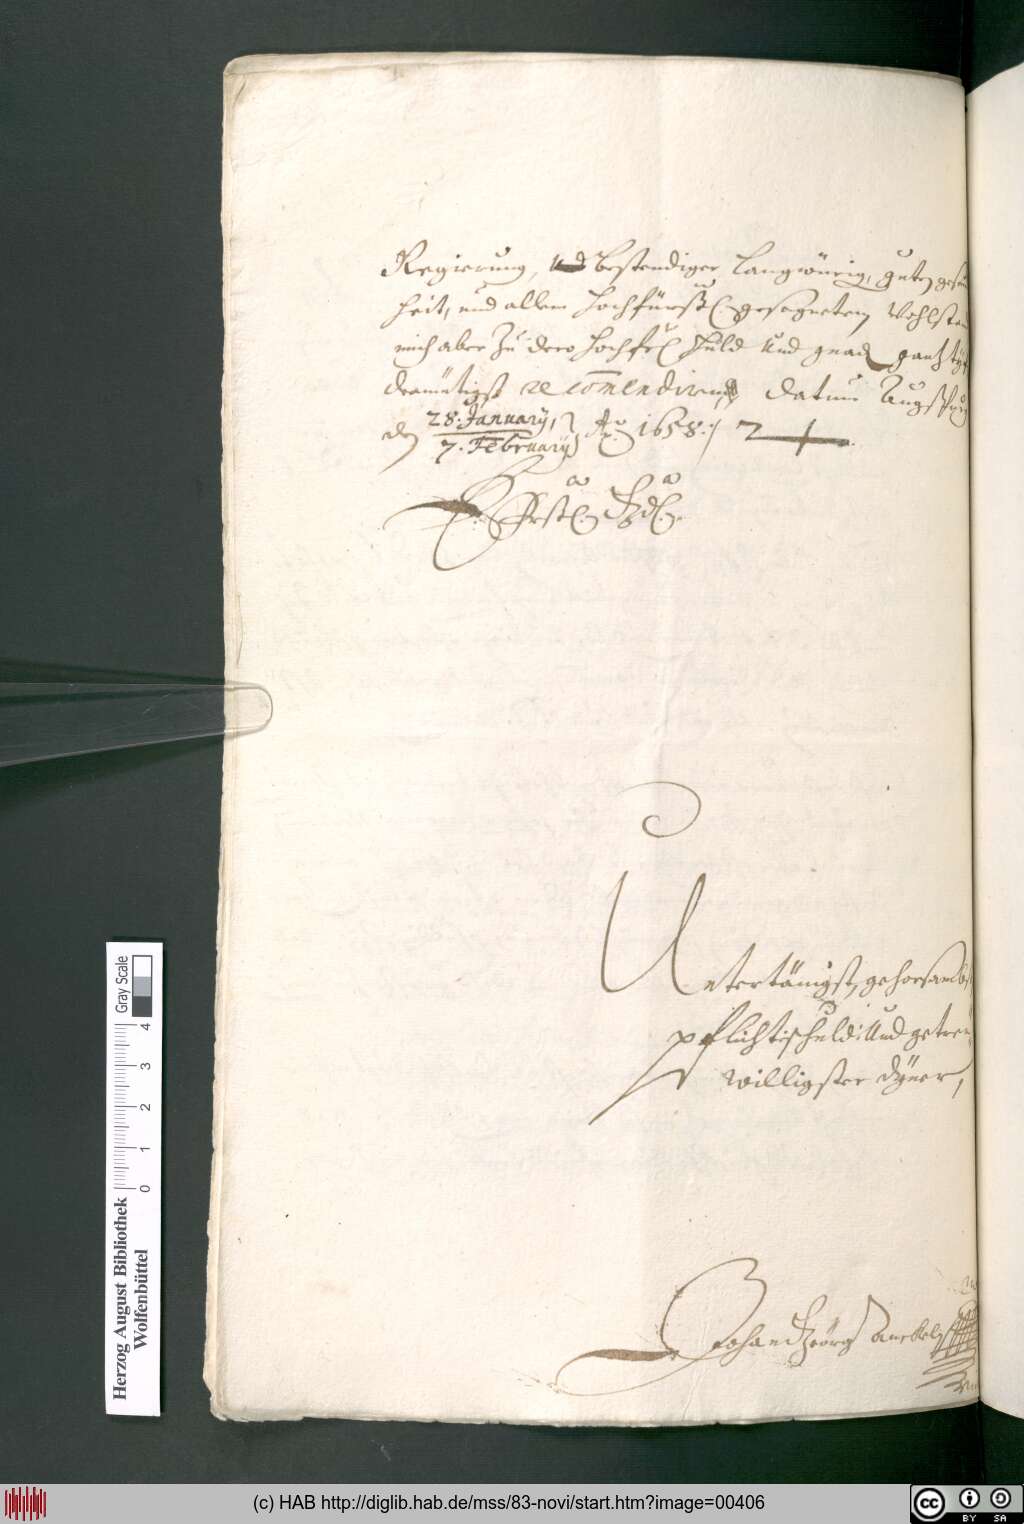 Regierung, und bestendiger langwürig, guten gesun
heit, und allem hochfürstl. gesegneten Wohlstand
mich aber zu dero hochfrl huld und gnad gantz
demütigst recomendirend Datum Augspurg
den 28. January, Ao. 1658.
7. February
E. Frstl. Gdl.
Untertänigst, gehorsambst
pflichtschuld: und getreu
willigster dyner,
Johan Georg Anckel
Herzog August Bibliothek
Wolfenbüttel
0 1 2 3 4
Gray Scale
(c) HAB http://diglib.hab.de/mss/83-novi/start.htm?image=00406
cc BY SA